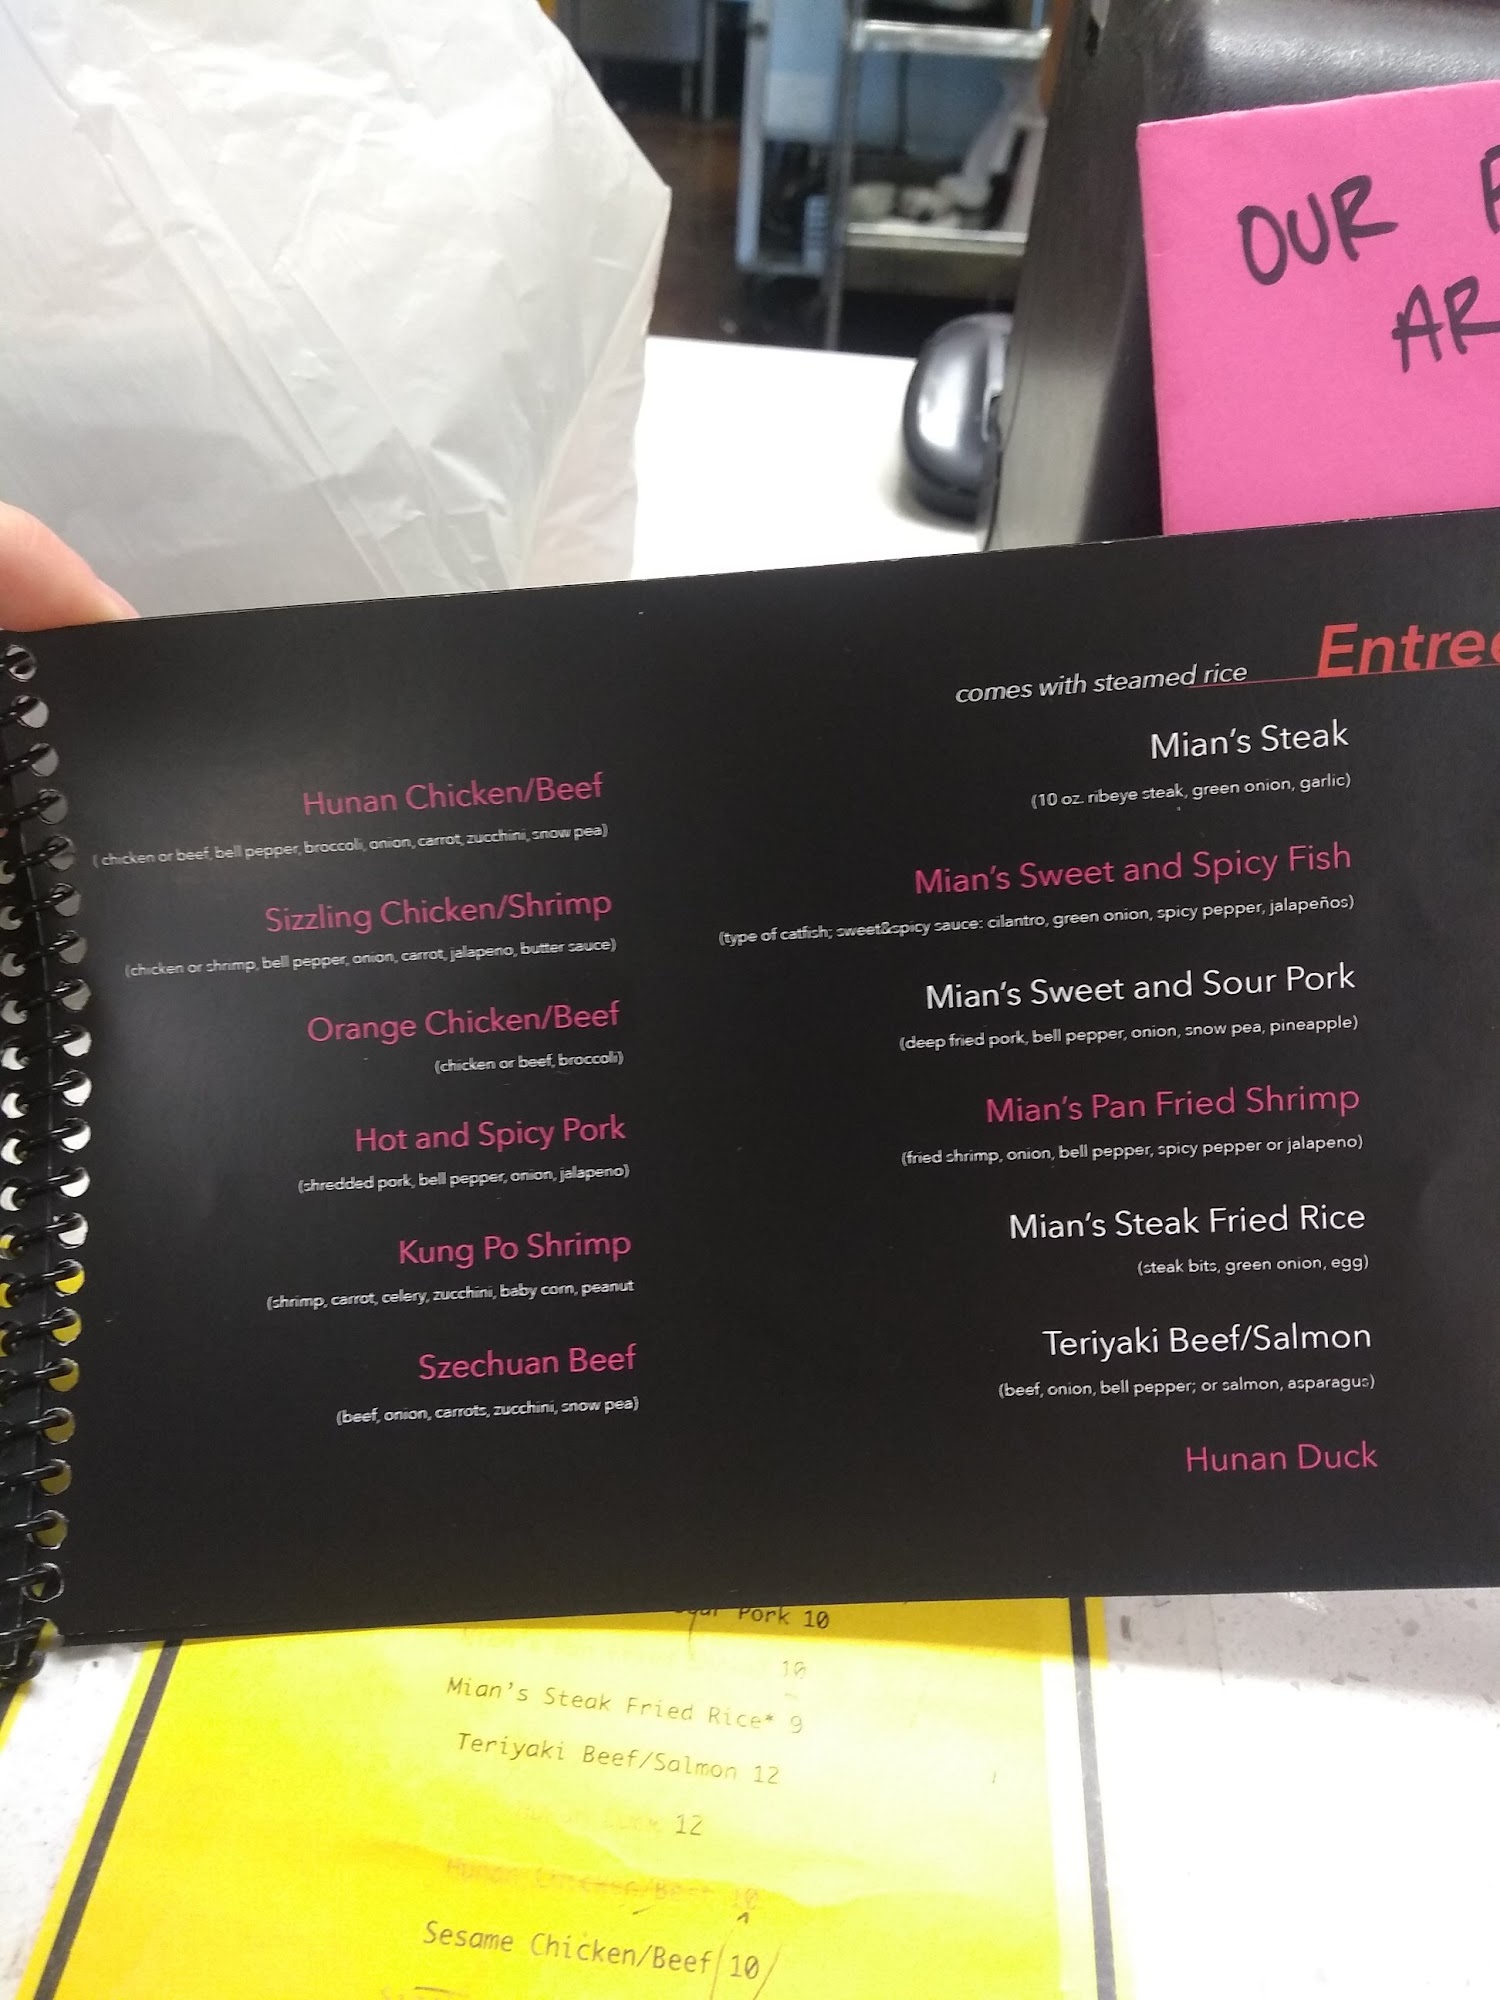 OUR
AR
Entree
comes with steamed rice
Hunan Chicken/Beef
( chicken or beef, bell pepper, broccoli, onion, carrot, zucchini, snow pea)
Sizzling Chicken/Shrimp
(chicken or shrimp, bell pepper, onion, carrot, jalapeno, butter sauce)
Orange Chicken/Beef
(chicken or beef, broccoli)
Hot and Spicy Pork
(shredded pork, bell pepper, onion, jalapeno)
Kung Po Shrimp
(shrimp, carrot, celery, zucchini, baby corn, peanut
Szechuan Beef
(beef, onion, carrots, zucchini, snow pea)
Mian's Steak
(10 oz. ribeye steak, green onion, garlic)
Mian's Sweet and Spicy Fish
(type of catfish; sweet&spicy sauce: cilantro, green onion, spicy pepper, jalapeños)
Mian's Sweet and Sour Pork
(deep fried pork, bell pepper, onion, snow pea, pineapple)
Mian's Pan Fried Shrimp
(fried shrimp, onion, bell pepper, spicy pepper or jalapeno)
Mian's Steak Fried Rice
(steak bits, green onion, egg)
Teriyaki Beef/Salmon
(beef, onion, bell pepper; or salmon, asparagus)
Hunan Duck
Pork 10
10
Mian's Steak Fried Rice* 9
Teriyaki Beef/Salmon 12
12
Hunan Chicken/Beef 10
Sesame Chicken/Beef 10